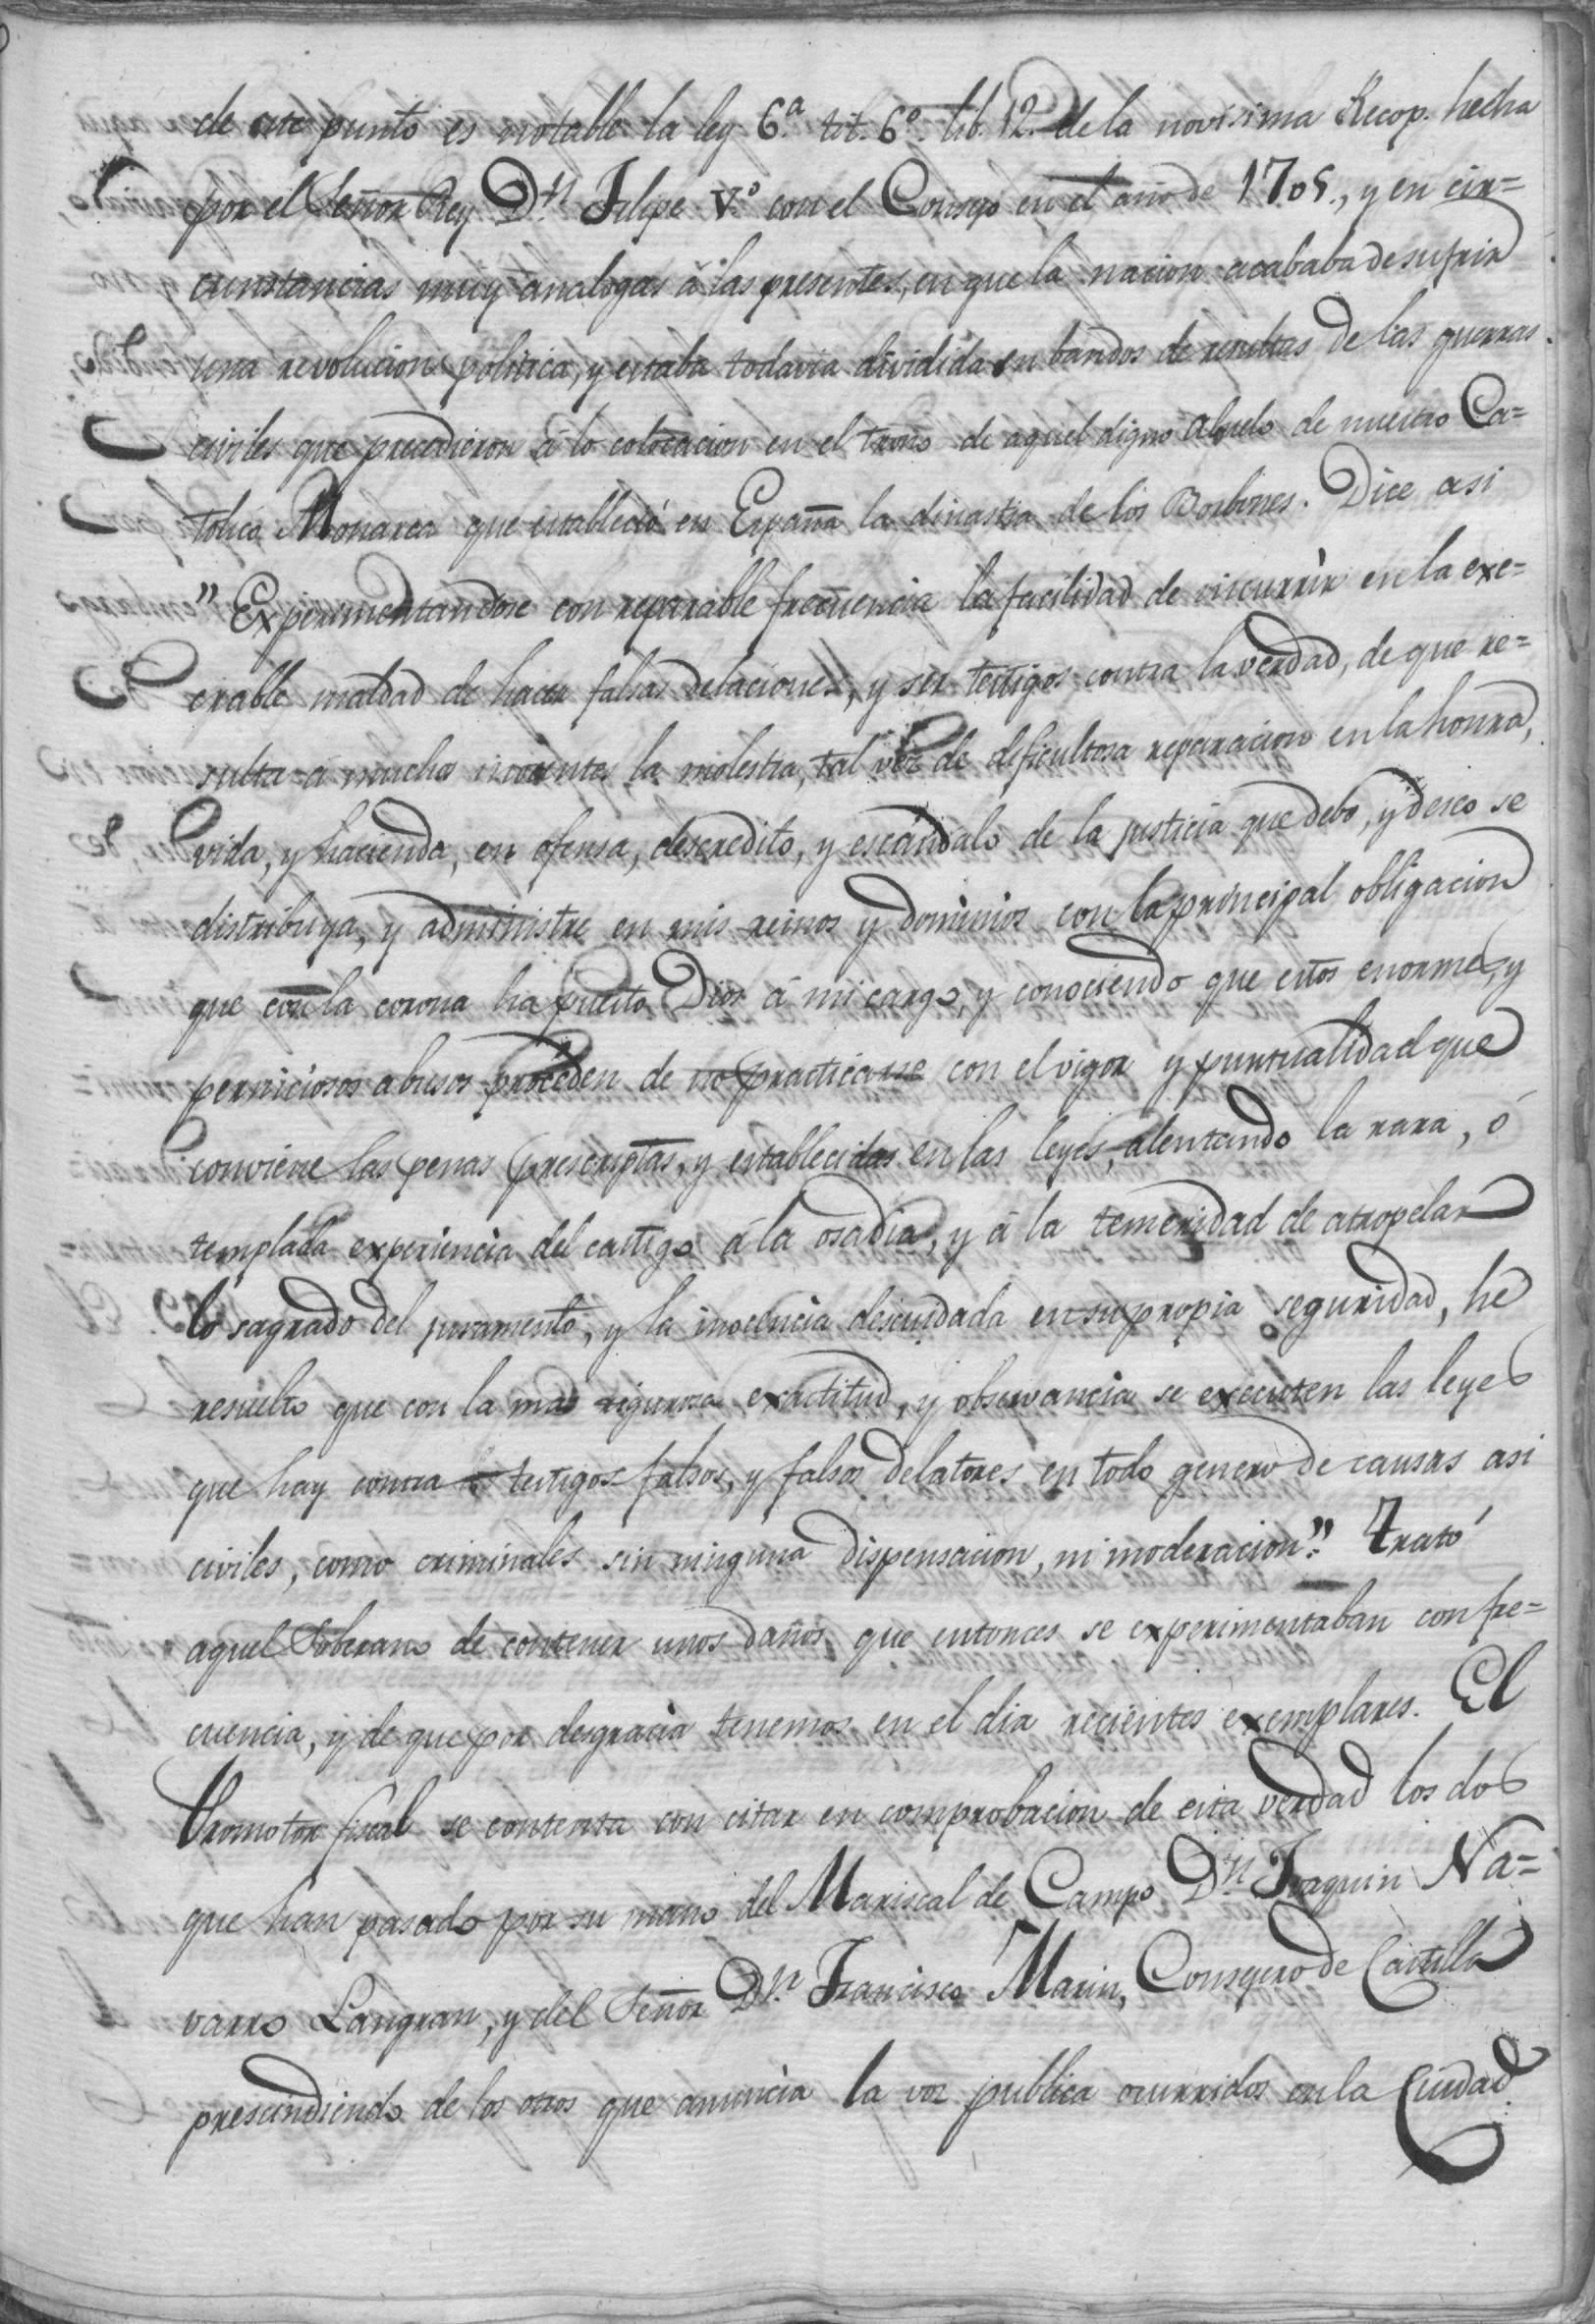 de este punto es notable la ley 6.ª tit. 6.º lib. 12. de la novisima Recop. hecha
por el Señor Rey D.n Felipe V.º con el Consejo en el año de 1705., y en cir=
cunstancias muy analogas á las presentes, en que la nacion acababa de sufrir
una revolucion politica, y estaba todavia dividida en bandos de resultas de las guerras
civiles que precedieron á lo colocacion en el trono de aquel digno Abuelo de nuestro Ca=
tolico Monarca que estableció en España la dinastia de los Borbones. Dice asi
"Experimentandose con reparable frecuencia la facilidad de incurrir en la exe=
crable maldad de hacer falsas delaciones, y ser testigos contra la verdad, de que re=
sulta á muchos inocentes la molestia, tal vez de dificultosa reparacion en la honra,
vida, y hacienda, en ofensa, descredito, y escándalo de la justicia que debo, y deseo se
distribuya, y administre en mis reinos y dominios con la principal obligacion
que con la corona ha puesto Dios á mi cargo, y conociendo que estos enormes, y
perniciosos abusos proceden de no practicarse con el vigor y puntualidad que
conviene las penas prescriptas, y establecidas en las leyes, alentando la rara, ó
templada experiencia del castigo á la osadia, y á la temeridad de atropelar
lo sagrado del juramento, y la inocencia descuidada en su propia seguridad, he
resuelto que con la mas rigurosa exactitud, y observancia se executen las leyes
que hay contra testigos falsos, y falsos delatores en todo genero de causas asi
civiles, como criminales sin ninguna dispensacion, ni moderacion". Trató
aquel Soberano de contener unos daños que entonces se experimentaban con fre=
cuencia, y de que por desgracia tenemos en el dia recientes exemplares. El
Promotor fiscal se contenta con citar en comprobacion de esta verdad los dos
que han pasado por su mano del Mariscal de Campo D.n Joaquin Na=
varro Sangran, y del Señor D.n Francisco Marin, Consejero de Castilla
prescindiendo de los otros que anuncia la voz publica ocurridos en la Ciudad